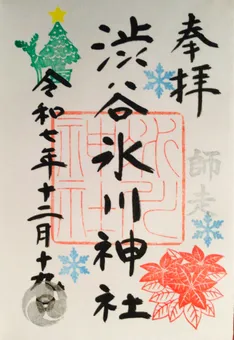 奉拝
師走
渋谷氷川神社
氷川神社
令和七年十二月十九日